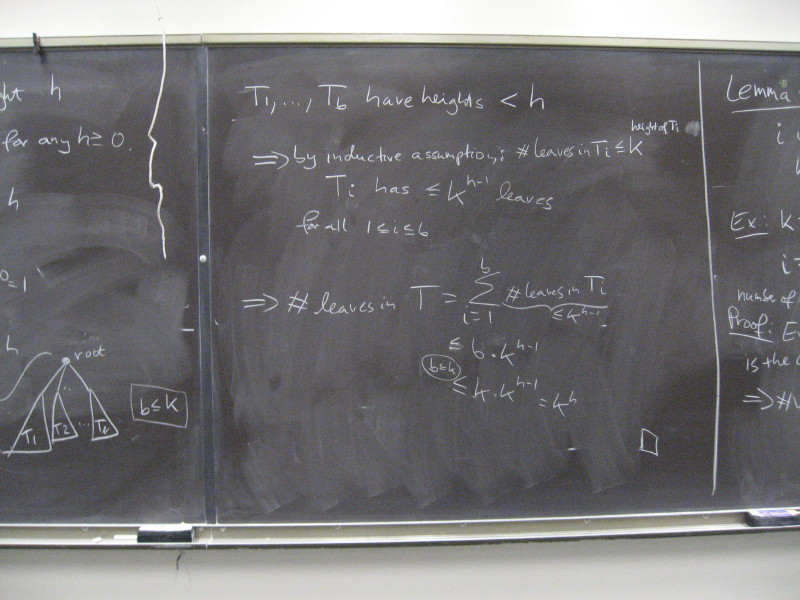 h
for any h ≥ 0.
h
0 = 1
h
root
T1 T2 ...
b ≤ k
T1, ..., Tb have heights < h
⇒ by inductive assumption: # leaves in Ti ≤ k^height of Ti
Ti has ≤ k^h-1 leaves
for all 1 ≤ i ≤ b
⇒ # leaves in T = ∑ i=1 b # leaves in Ti
≤ k^h-1
≤ b · k^h-1
b ≤ k
≤ k · k^h-1 = k^h
□
Lemma
i
Ex.: k
i =
number of
Proof:
is the
⇒ #